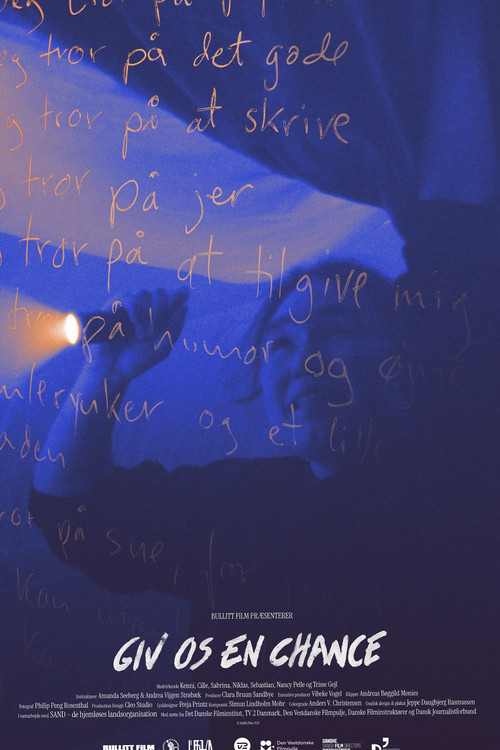 eg tror på
eg tror på det gode
g tror på at skrive
tror på jer
tror på at tilgive mig
på humor og
og et lille
på
BULLITT FILM PRÆSENTERER
GIV OS EN CHANCE
Medvirkende Kenni, Cille, Sabrina, Niklas, Sebastian, Nancy Pelle og Trisse Gejl
Instruktører Amanda Seeberg & Andrea Vijgen Strøbæk Producer Clara Bruun Sandbye Executive producer Vibeke Vogel Klipper Andreas Bøggild Monies
Fotograf Philip Peng Rosenthal Production Design Cleo Studio Lyddesigner Freja Printz Komponist Simun Lindholm Mohr Colorgrade Anders V. Christensen Grafisk design & plakat Jeppe Daugbjerg Rasmussen
I samarbejde med SAND - de hjemløses landsorganisation Med støtte fra Det Danske Filminstitut, TV 2 Danmark, Den Vestdanske Filmpulje, Danske Filminstruktører og Dansk Journalistforbund
BULLITT FILM
Den Vestdanske
Filmpulje
DANSKE
FILM